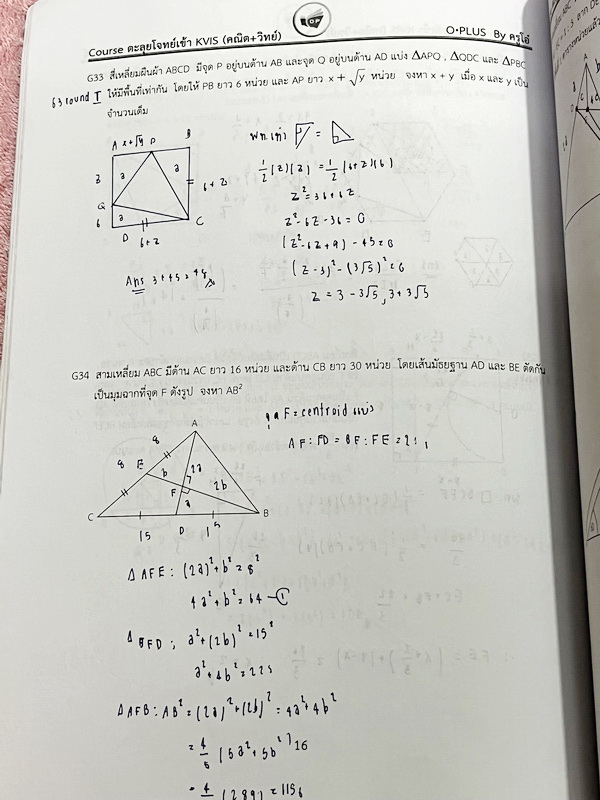 Course ตะลุยโจทย์เข้า KVIS (คณิต+วิทย์)
OP
O•PLUS By ครูโอ๋
G33 สี่เหลี่ยมผืนผ้า ABCD มีจุด P อยู่บนด้าน AB และจุด Q อยู่บนด้าน AD แบ่ง ΔAPQ , ΔQDC และ ΔPBC
63 round I ให้มีพื้นที่เท่ากัน โดยให้ PB ยาว 6 หน่วย และ AP ยาว x + √y หน่วย จงหา x + y เมื่อ x และ y เป็น
จำนวนเต็ม
A x+√y P B
z a a 6+z
Q a
6 D C
6+z
พท.เท่า =
1/2 (z)(z) = 1/2 (6+z)(6)
z² = 36+6z
z²-6z-36 = 0
(z²-6z+9) - 45 = 0
(z-3)² - (3√5)² = 0
z = 3-3√5, 3+3√5
Ans 3+45 = 48
G34 สามเหลี่ยม ABC มีด้าน AC ยาว 16 หน่วย และด้าน CB ยาว 30 หน่วย โดยเส้นมัธยฐาน AD และ BE ตัดกัน
เป็นมุมฉากที่จุด F ดังรูป จงหา AB²
F = centroid
AF : FD = BF : FE = 2:1
A
8
8 E b 2a
F 2b
a
C D B
15 15
ΔAFE : (2a)²+b² = 8²
4a²+b² = 64 - ①
ΔBFD : a²+(2b)² = 15²
a²+4b² = 225
ΔAFB : AB² = (2a)²+(2b)² = 4a²+4b²
= 4/5 (5a²+5b²)
16
= 4/ (289) = 1156